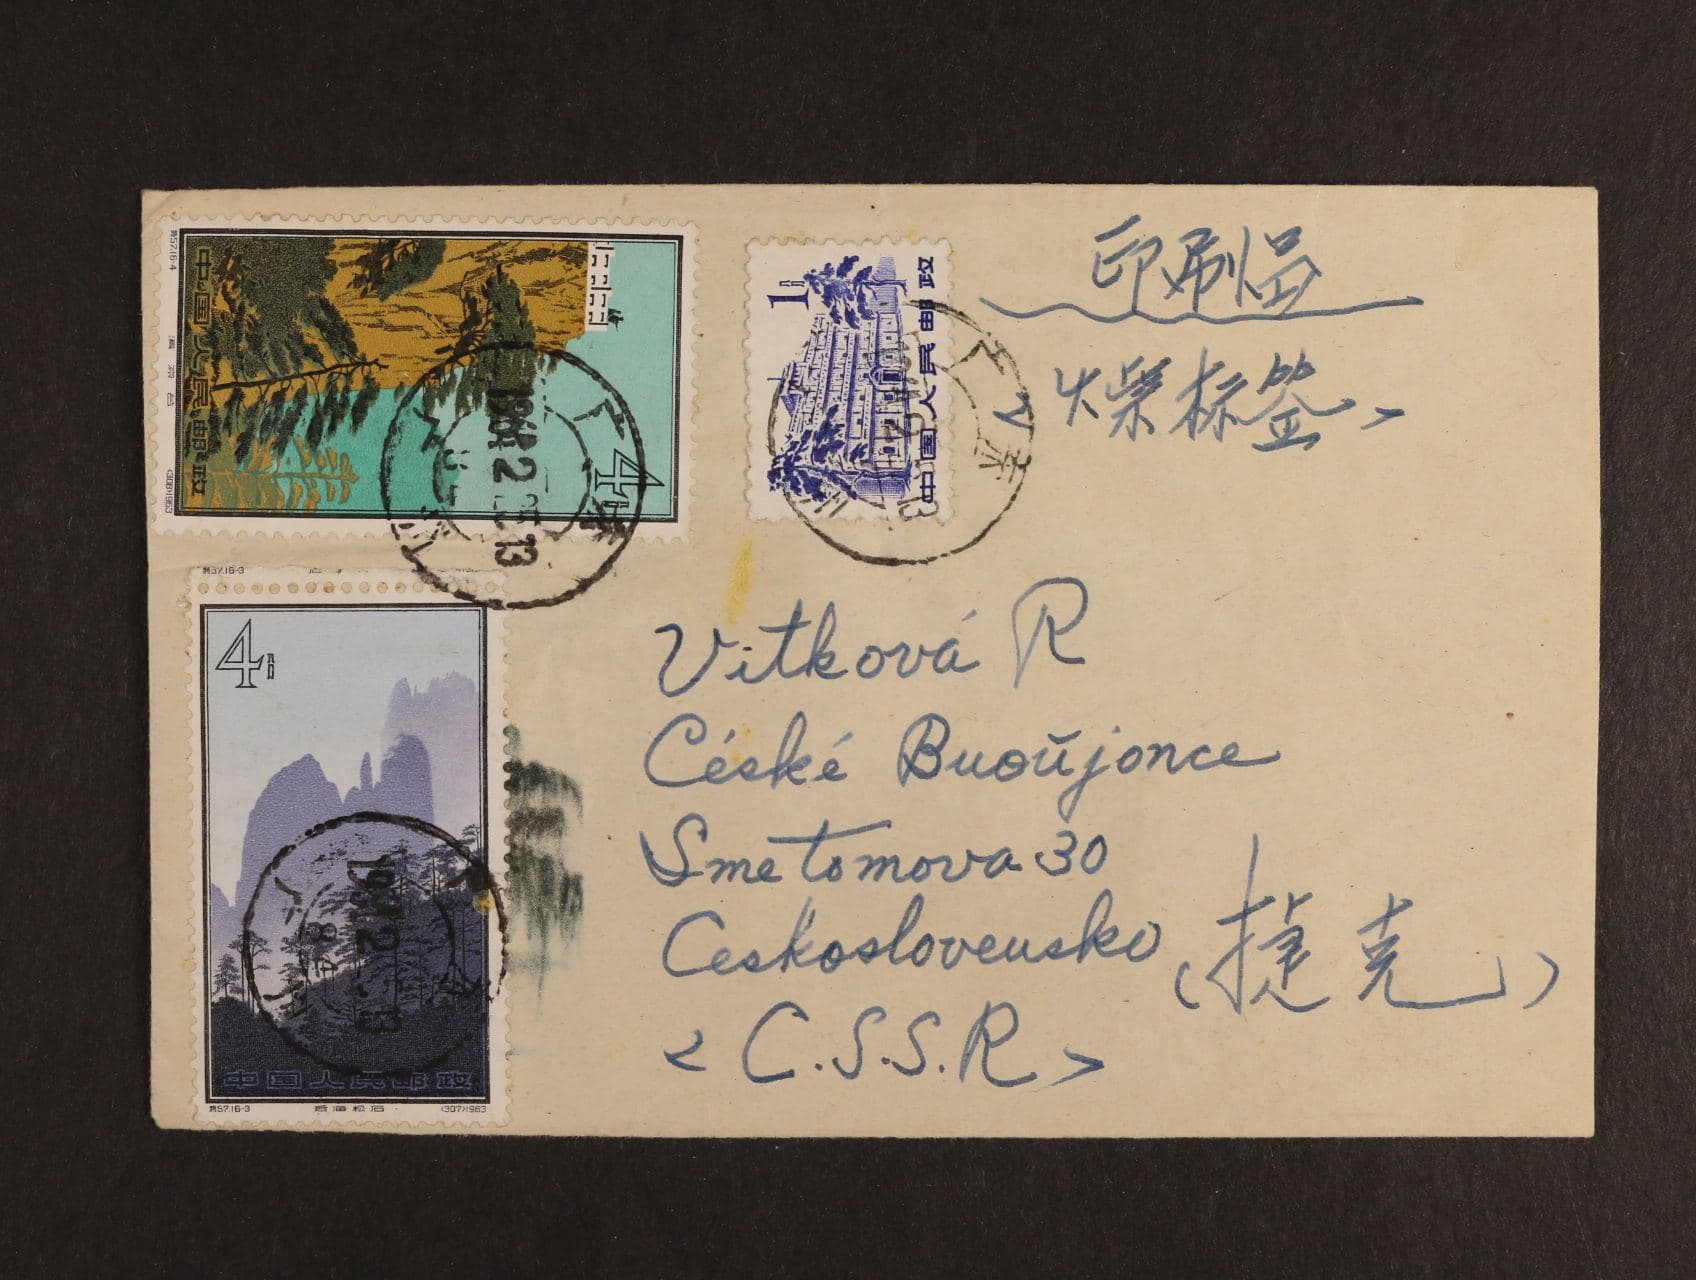 特57.16-4
清凉台
(308)1963
中国人民邮政
4分
1964.2.25.13
1分
中国人民邮政
印刷品
<火柴标签>
特57.16-3
4分
中国人民邮政
特57.16-3
后海松石
(307)1963
Vitková R
Céské Buoŭjonce
Smetomova 30
Ceskoslovensko (捷克)
<C.S.S.R>